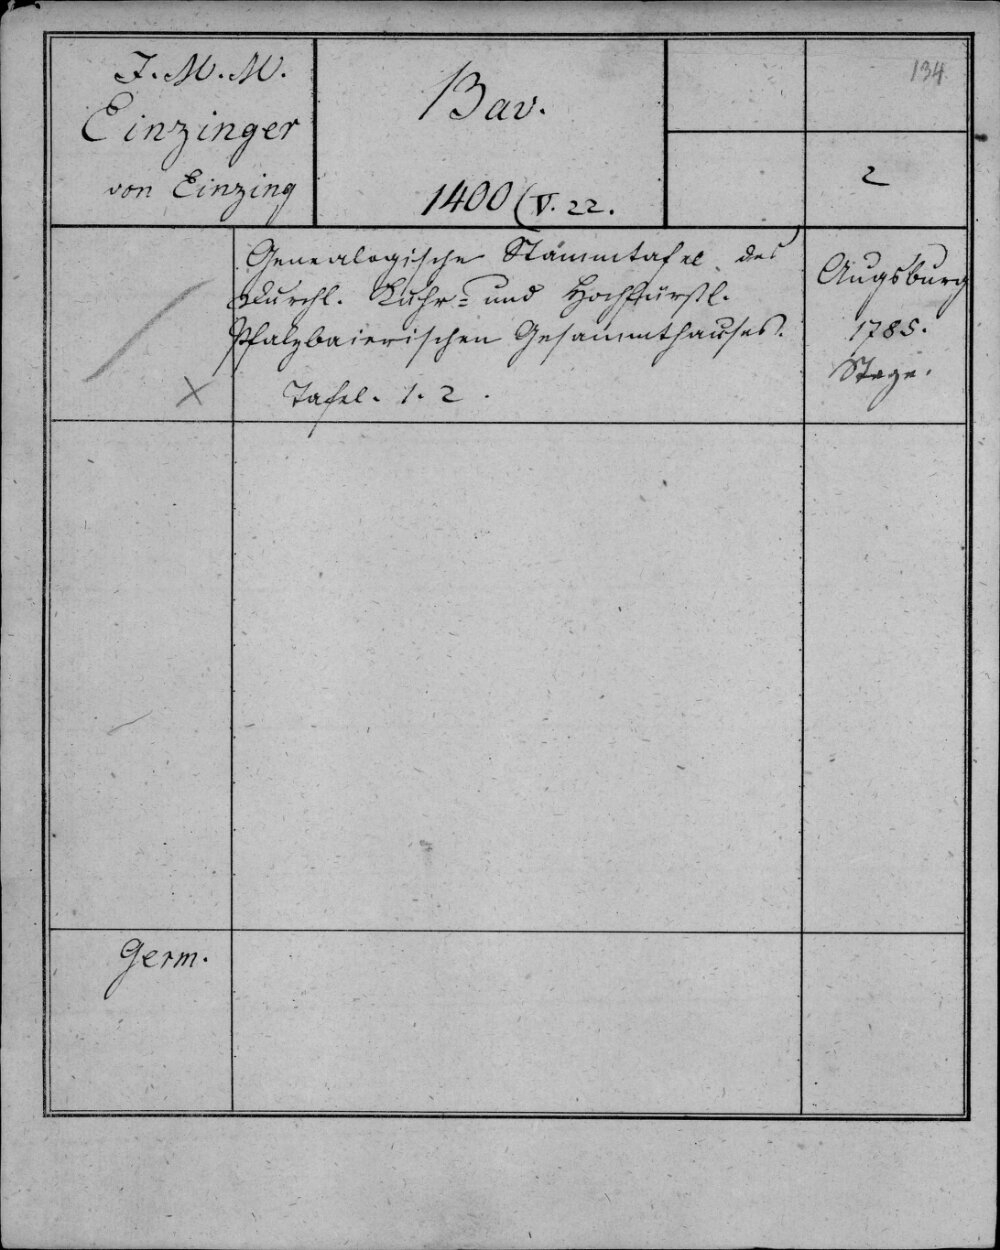 J. M. M.
Einzinger
von Einzing
Bav.
1400 (V. 22.
134
2
Genealogische Stammtafel des
Durchl. Kuhr- und Hochfürstl.
Pfalzbaierischen Gesammthauses.
Tafel. 1. 2.
Augsburg
1785.
Stage.
Germ.